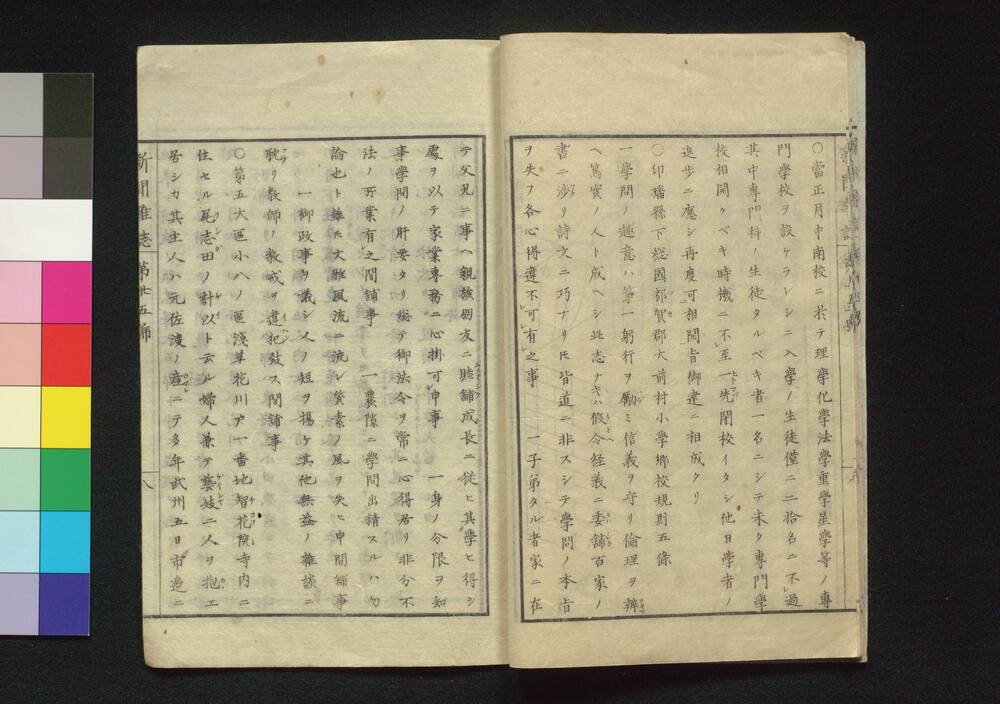 〇當正月中南校ニ於テ理學化學法學重學星學等ノ專
門學校ヲ設ケラレシニ入學ノ生徒僅ニ二拾名ニ不過
其中專門科ノ生徒タルベキ者一名ニシテ未タ專門學
校相開クベキ時機ニ不至一先閉校イタシ他日學者ノ
進歩ニ應シ再度可相開旨御達ニ相成タリ
〇印旛縣下總國都賀郡大前村小學郷校規則五條
一學問ノ趣意ハ第一躬行ヲ勵ミ信義ヲ守リ倫理ヲ辨
ヘ篤實ノ人ト成ヘシ此志ナキハ假令経義ニ委舗百家ノ
書ニ渉リ詩文ニ巧ナリ𪜈皆道ニ非スシテ學問ノ本旨
ヲ失フ各心得違不可有之事　一子弟タル者家ニ在
テ父兄ニ事ヘ親族朋友ニ睦舗成長ニ從ヒ其學ヒ得シ
處ヲ以テ家業專務ニ心掛可申事　一身ノ分限ヲ知
事學問ノ肝要タリ総テ御法令ヲ常ニ心得居リ非分不
法ノ所業有之間舗事　一農隙ニ學問出精スルハ勿
論也ト雖モ文雅風流ニ流レ質素ノ風ヲ失ヒ申間舗事
一御政事ヲ議シ人ノ短ヲ揚ケ其他無益ノ雜談ニ
耽リ教師ノ教戒ヲ違犯致ス間舗事
〇第五大區小八ノ區淺草花川戸一番地智花院寺内ニ
住セル尾志田ノ計以ト云ル婦人兼テ藝妓二人ヲ抱エ
居シカ其主人ハ元佐渡ノ産ニテ多年武州五日市邉ニ
新聞雜志　第廿五號　八